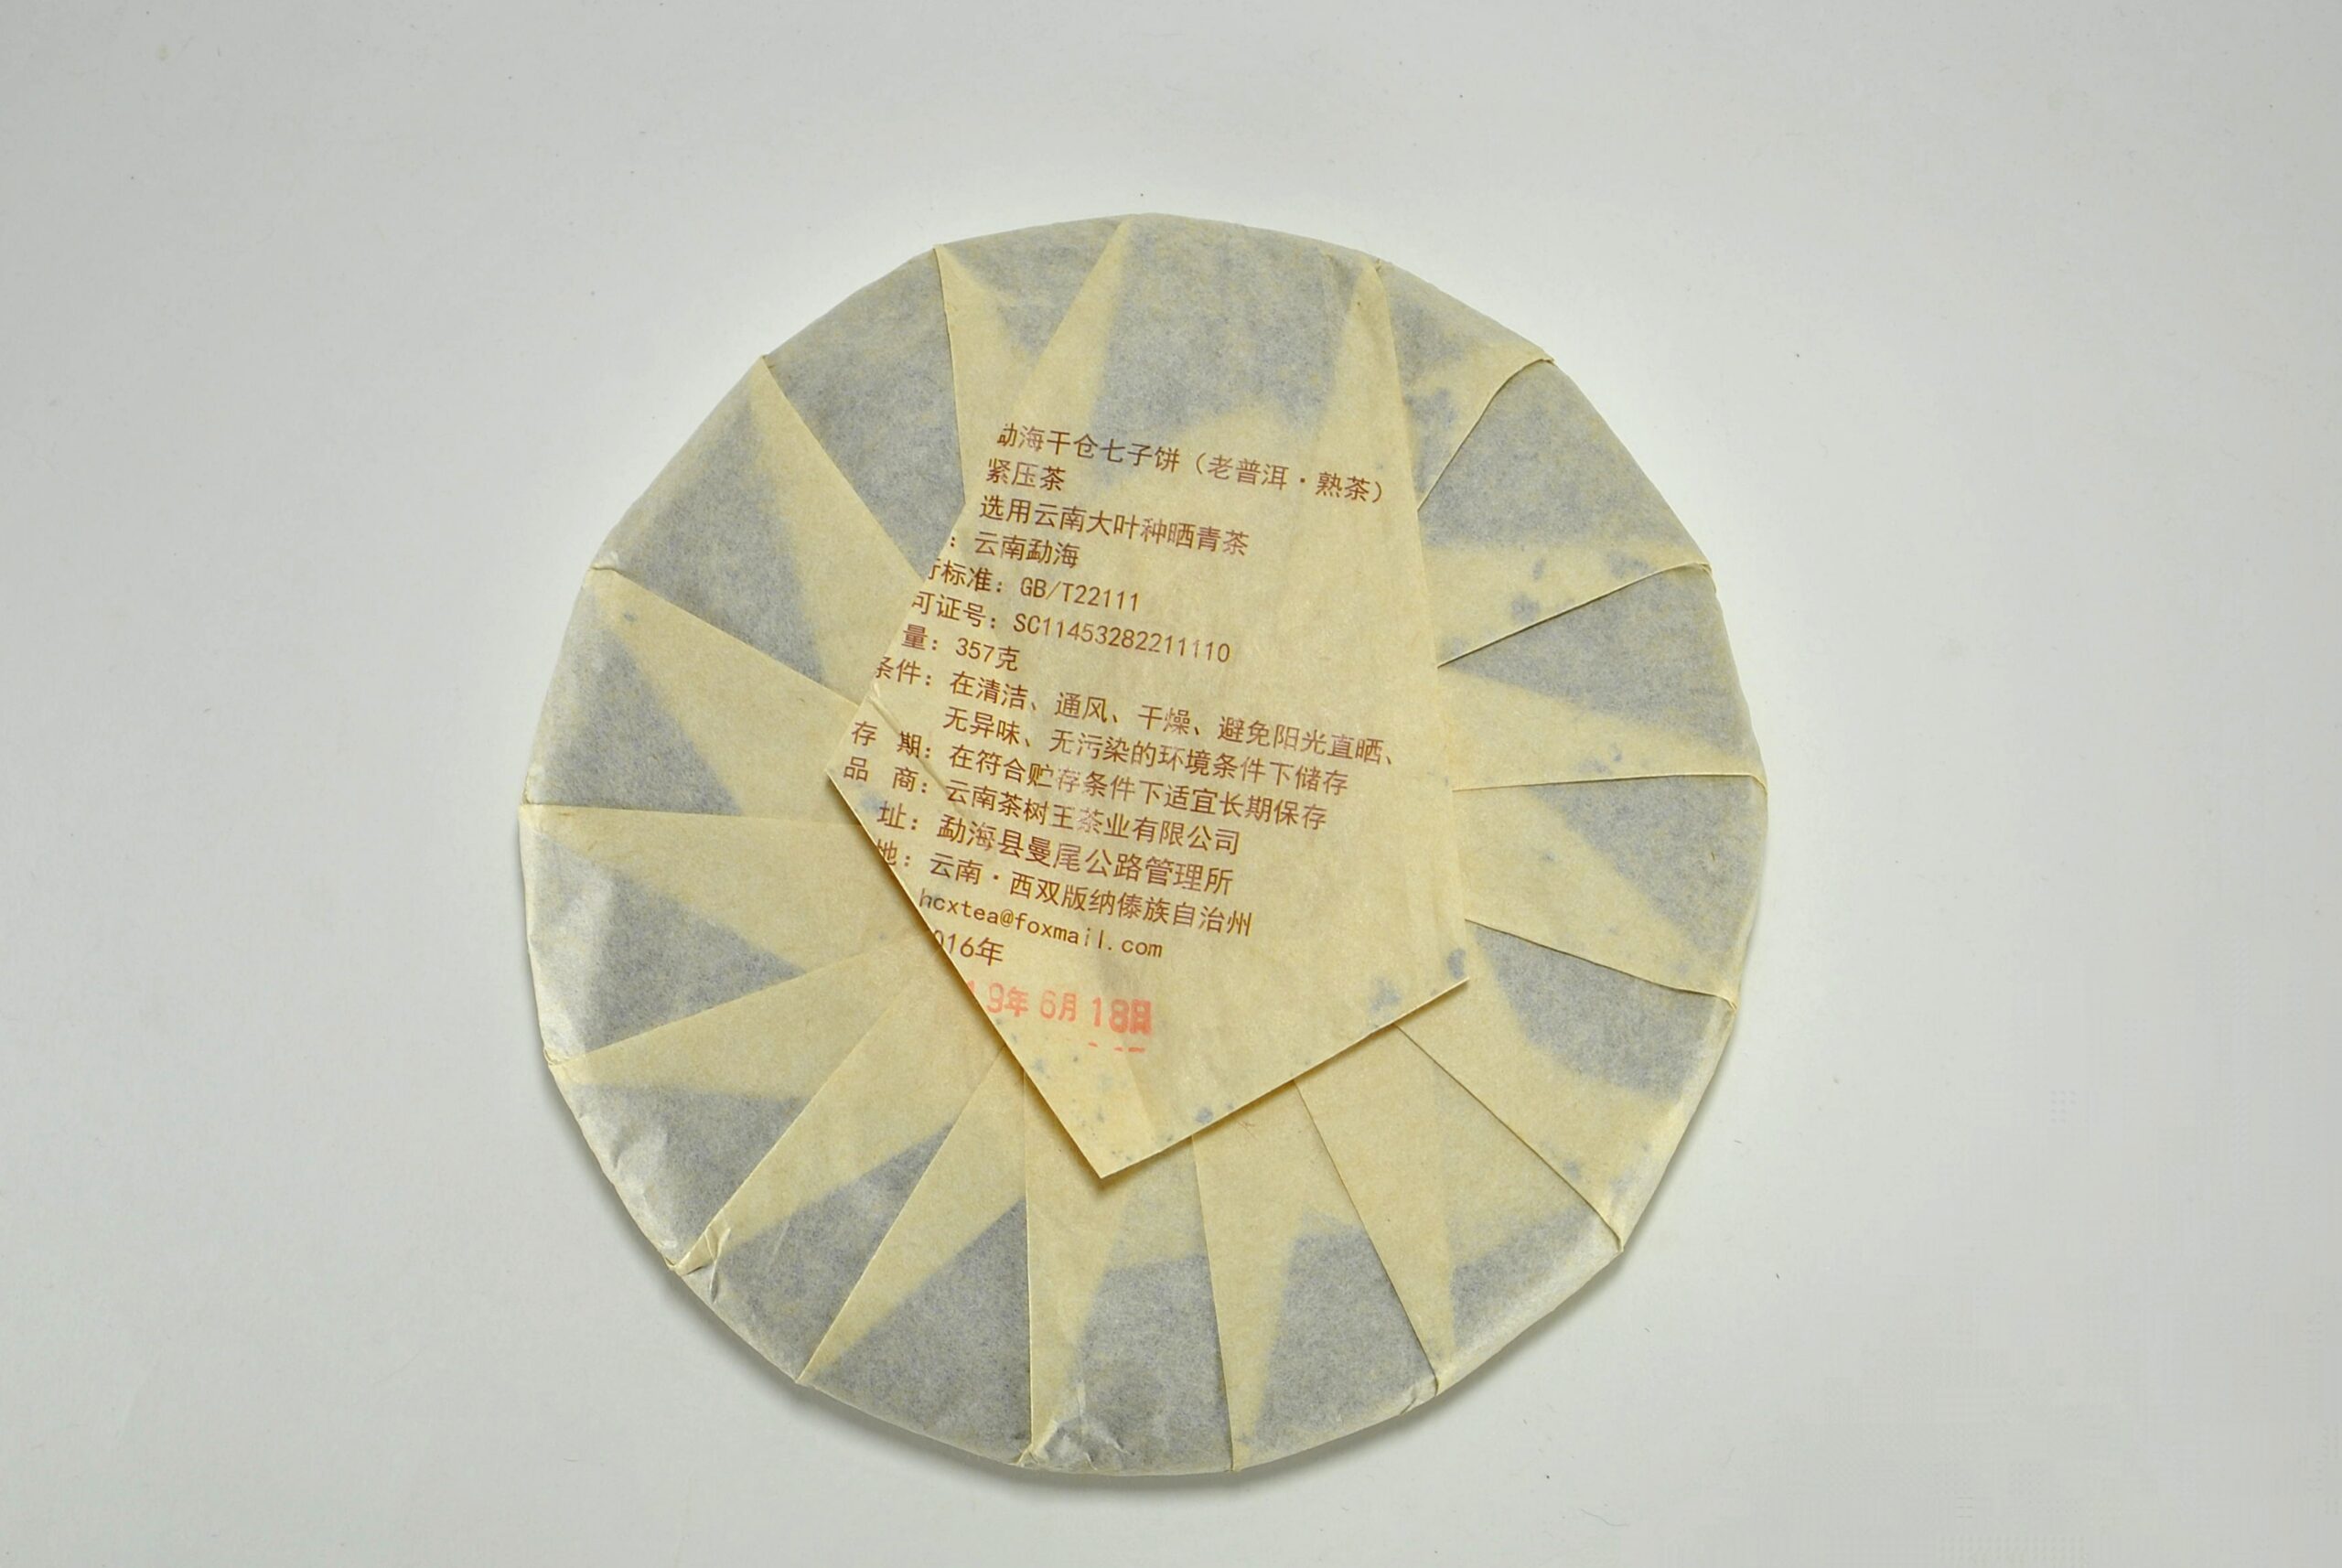 勐海干仓七子饼（老普洱·熟茶）
紧压茶
选用云南大叶种晒青茶
：云南勐海
行标准：GB/T22111
可证号：SC11453282211110
量：357克
条件：在清洁、通风、干燥、避免阳光直晒、
无异味、无污染的环境条件下储存
存 期：在符合贮存条件下适宜长期保存
品 商：云南茶树王茶业有限公司
址：勐海县曼尾公路管理所
地：云南·西双版纳傣族自治州
hcxtea@foxmail.com
016年
19年6月18日